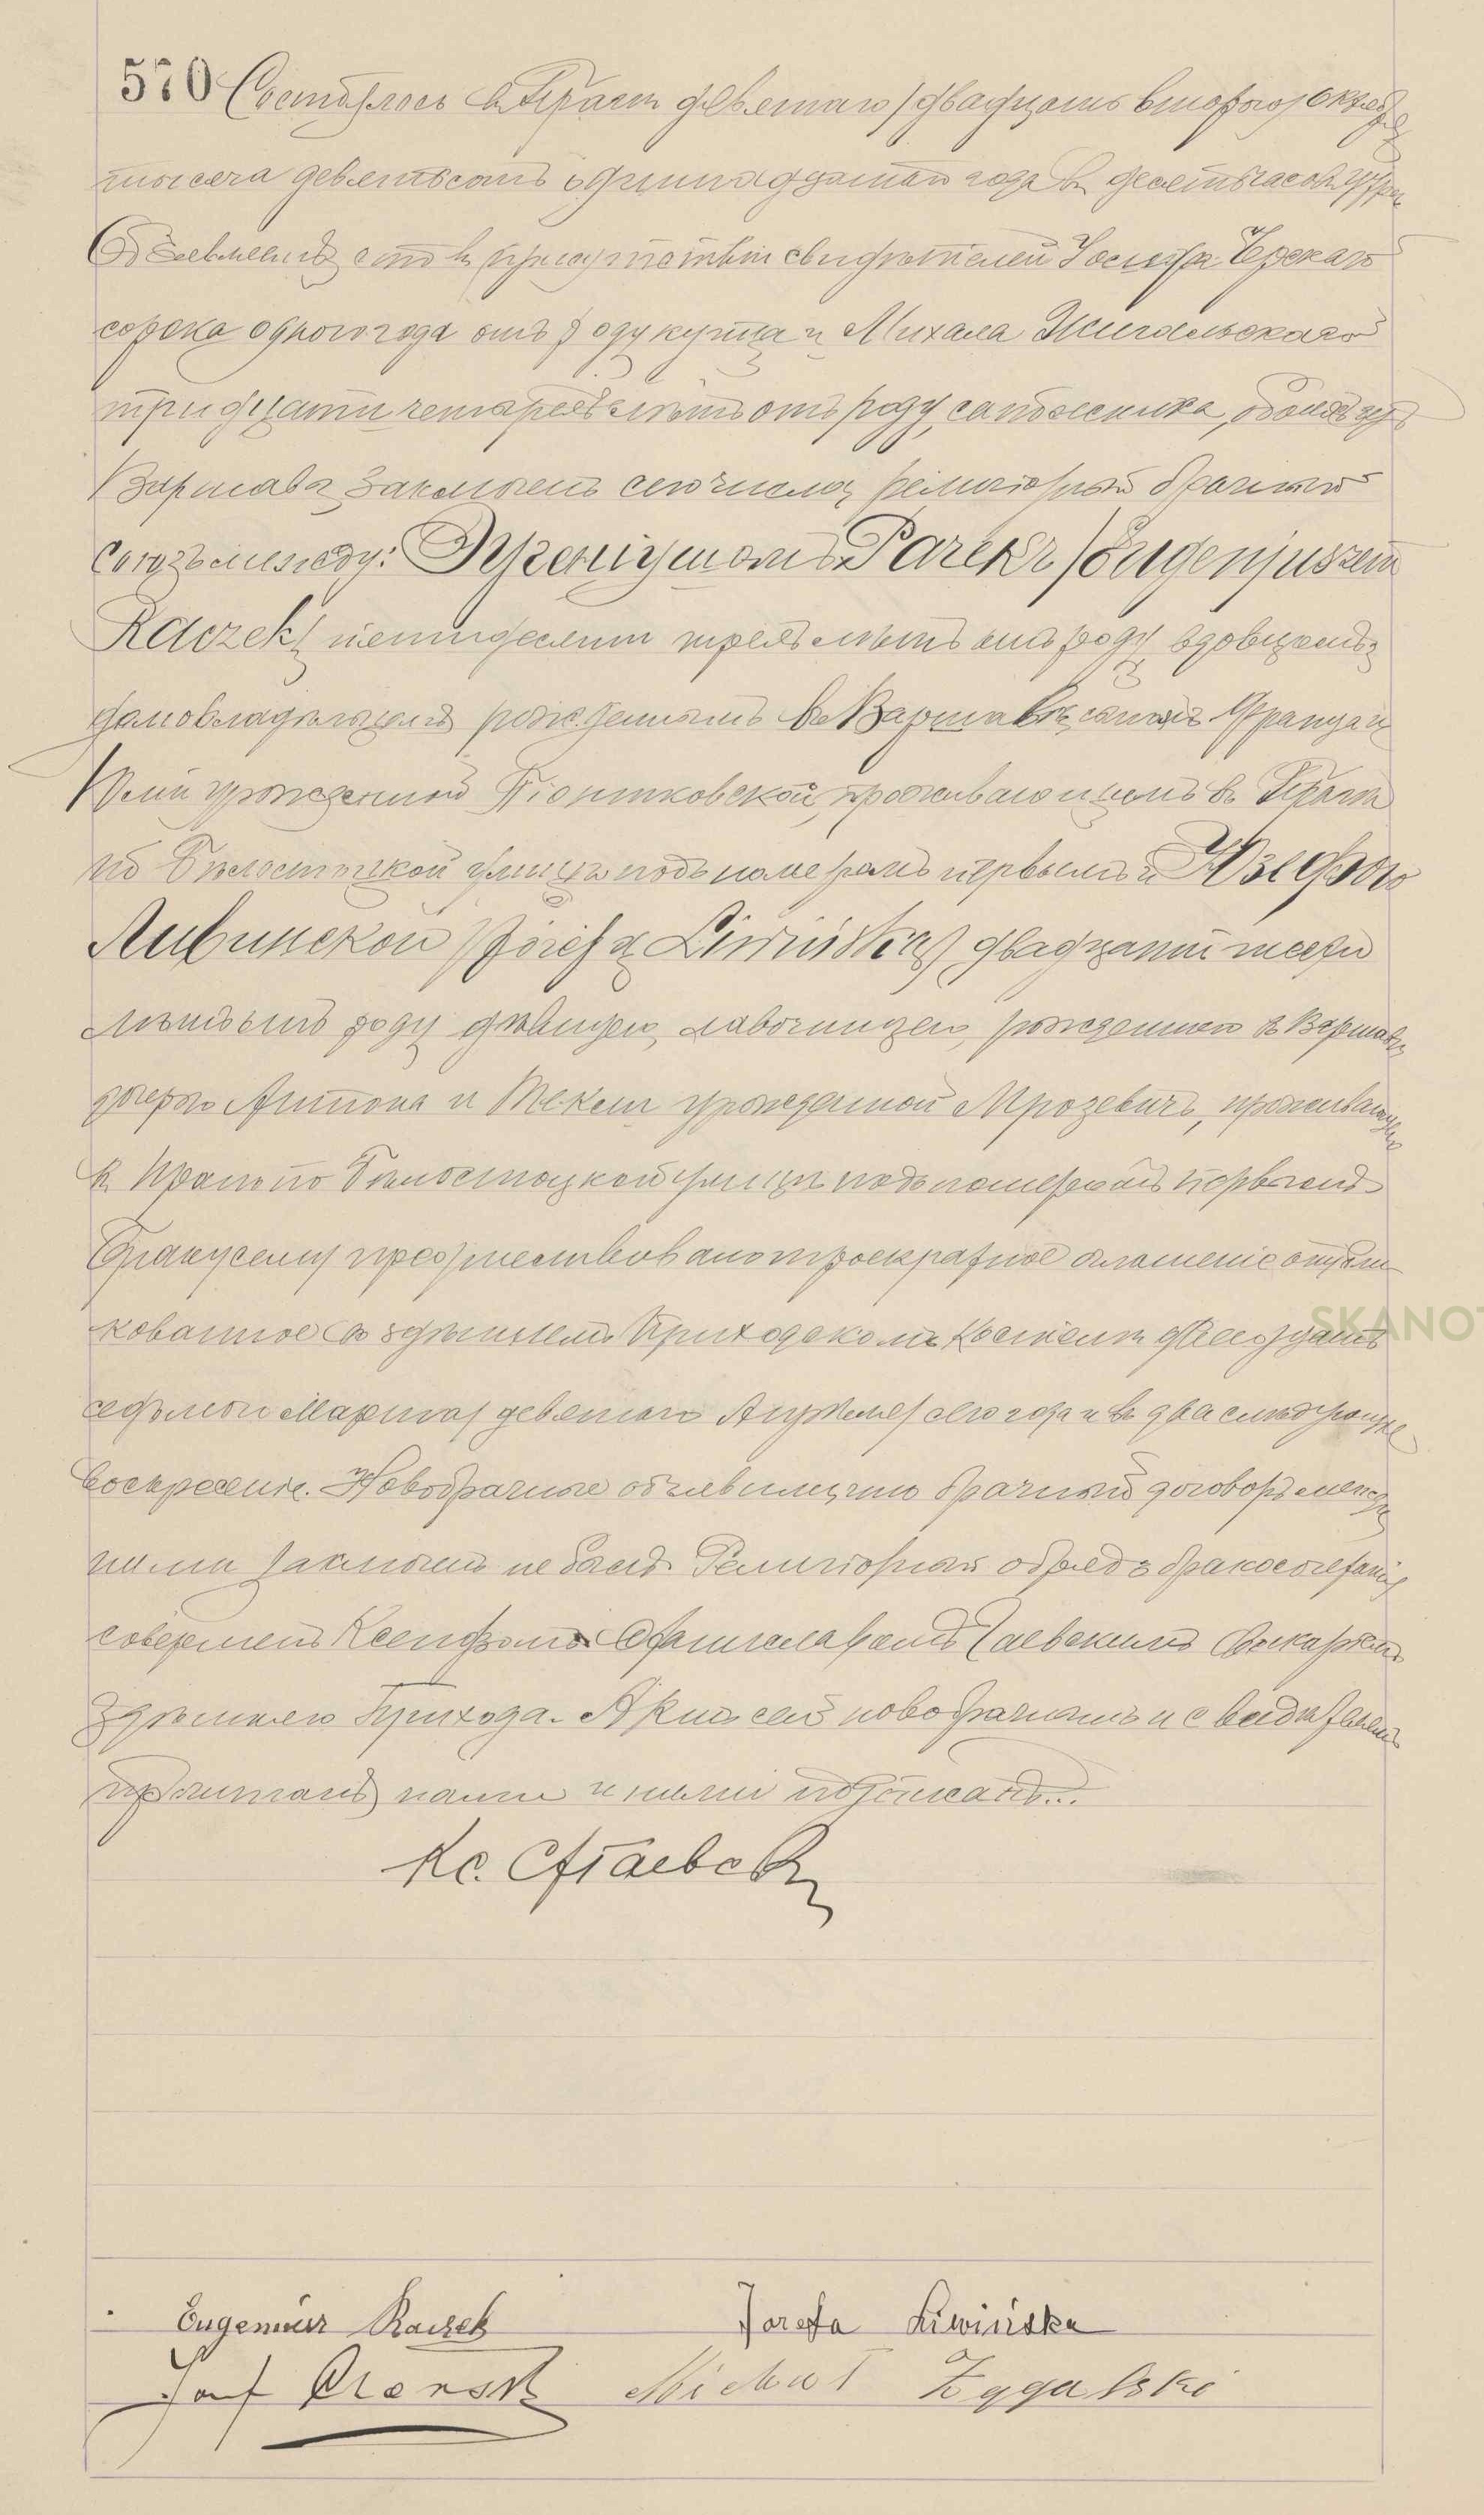 570 Состоялось въ Прагѣ девятаго /двадцать второго/ Октября
тысяча девятьсотъ одиннадцатаго года въ десять часовъ утра
Объявляемъ, что въ присутствіи свидѣтелей Іосифа
сорока одного года отъ роду купца и Михала Жигальскаго
тридцати четырехъ лѣтъ отъ роду, сапожника, обоихъ изъ
Варшавы, заключенъ сего числа религіозный брачный
союзъ между: Эугеніушомъ Рачекъ /Eugenjuszem
Raczek/ пятидесяти трехъ лѣтъ отъ роду, вдовцемъ,
домовладѣльцемъ рожденнымъ въ Варшавѣ, сыномъ Франца и
урожденной Піонтковской, проживающимъ въ Прагѣ
по Бѣлостоцкой улицѣ подъ номеромъ первымъ и Юзефою
Ливинской /Józefą Liwińską/, двадцати шести
лѣтъ отъ роду дѣвицею, лавочницею, рожденною въ Варшавѣ
дочерью Антона и Теклы урожденной Мрозевичъ, проживающею
въ Прагѣ по Бѣлостоцкой улицѣ подъ номеромъ первымъ.
Браку сему предшествовало троекратное оглашеніе опубли-
кованное въ здѣшнемъ Приходскомъ Костелѣ двадцать
седьмого Марта /девятаго Апрѣля/ сего года и въ два слѣдующіе
воскресенія. Новобрачные объявили, что брачный договоръ между
ними заключенъ не былъ. Религіозный обрядъ бракосочетанія
совершенъ Ксендзомъ Станиславомъ Викаріемъ
здѣшняго Прихода. Актъ сей новобрачнымъ и свидѣтелямъ
прочитанъ, нами и ними подписанъ...
Кс.
Eugeniusz Raczek Józefa Liwińska
Józef Michał Żygalski
SKANOT